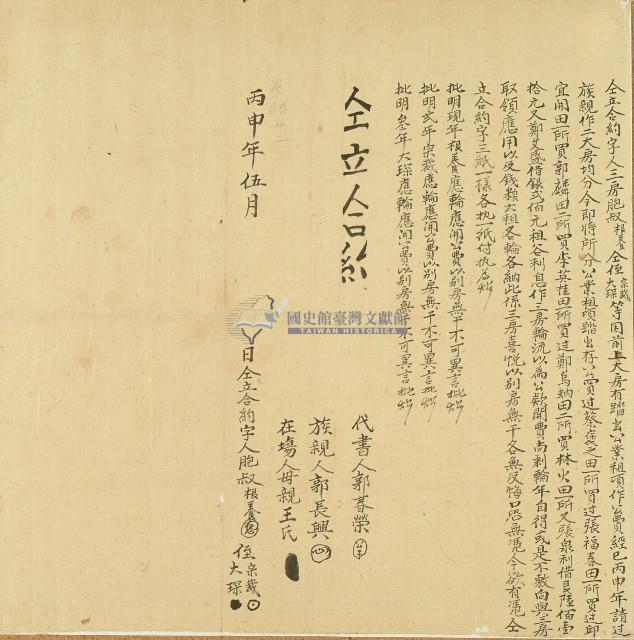 仝立合約字人三房胞叔根養仝侄宗裁大琛等因前上大房有踏出公業租項作公費經已丙申年請过
族親作二大房均分今即將所分公業租項踏出存公買过蔡 之田一所買过張福春田一所買过邱
宜開田一所買郭麟田一所買李英桂田一所買过鄭烏蚋田一所買林火田一所又張泉利借艮陸佰
拾元又鄭文盛借銀弍佰元租谷利息作三房輪流以為公 費尚剩輪年自得或是不敷向與三房
取領應用以及錢粮大租各輪各納此係三房喜悅以別房無干各無反悔口恐無憑今欲有憑仝
立合約字三紙一樣各执一紙付执為炤
批明現年根養應輪應開公費以別房無干不可異言批炤
批明弍年宗裁應輪應開公費以別房無干不可異言批炤
批明叁年大琛應輪應開公費以別房無干不可異言批炤
仝立合約
代書人郭春榮
族親人郭長興
在塲人母親王氏
丙申年伍月 日仝立合約字人胞叔根養 侄宗裁大琛
國史館臺灣文獻館
TAIWAN HISTORICA